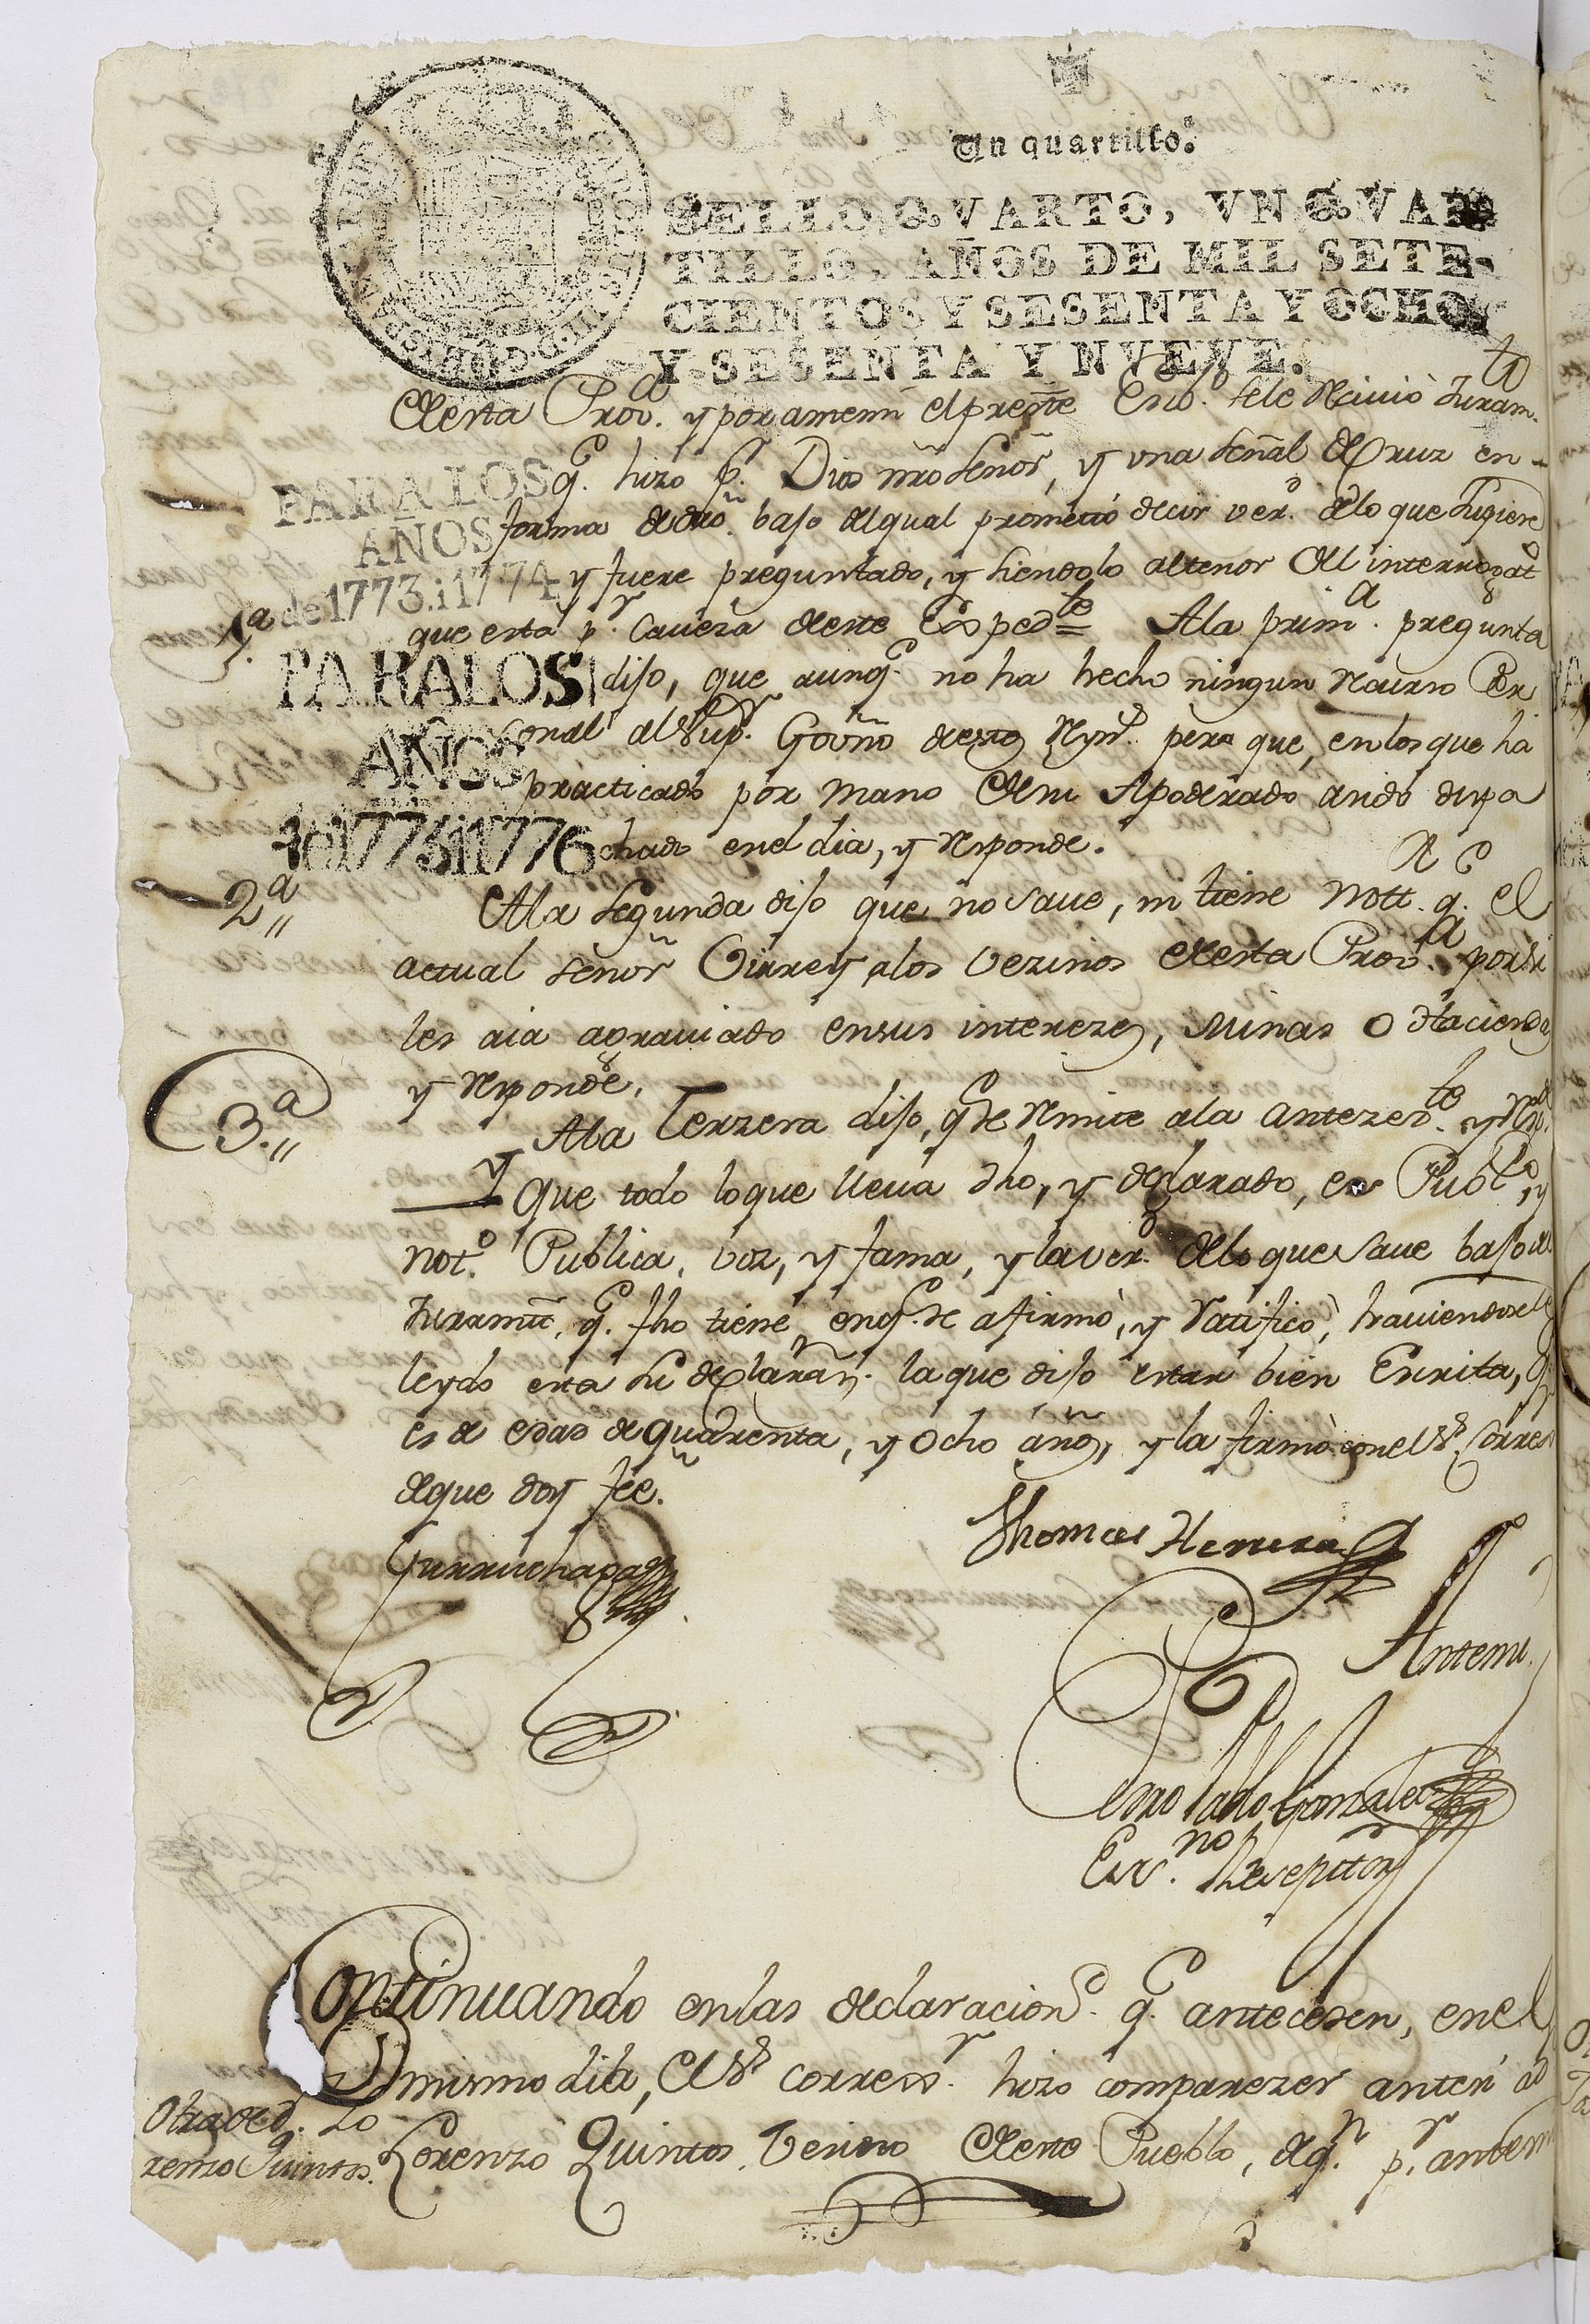 Un quartillo.
SELLO QVARTO, VN QVAR
TILLO, AÑOS DE MIL SETE-
CIENTOS Y SESENTA Y OCHO
Y SESENTA Y NVEVE.
PARA LOS
AÑOS
de 1773. i 1774
PARA LOS
AÑOS
de 1775 i 1776
desta Prov.ª y por amemi el preste Esno. sele Recivió Juram.to
q.e hizo p.r Dios nro Señor, y una Señal de Cruz en
forma de dro. bajo del qual prometió decir ver.d de lo que Supiere
y fuere preguntado, y siendolo al tenor del interrogat.o
1.ª que esta p.r Caveza deste Exped.te = A la prim.a pregunta
dijo, que aunq.e no ha hecho ningun Recurso Per
sonal al Sup.or Govño deste Reyn.o pero que, en los que ha
practicado por mano de su Apoderado a sido despa
chado en el dia, y Responde.
2.ª A la Segunda dijo que no save, ni tiene nott.a q.e el
actual Señor Virrey a los Vezinos desta Prov.a por si
les aia agraviado en sus interezes, Minas o Hacienda
y Responde.
3.ª A la Terzera dijo, q.e se Remite a la antezed.te y Resp.de
Y que todo lo que lleva dho, y declarado, es Publ.co, y
not.o Publica, voz, y fama, y la ver.d de lo que save bajo del
Juramto. q.e fho tiene en q.e se afirmó, y Ratificó, haviendosele
leydo esta su declaraz.n la que dijo estar bien Escrita, q.e
es de edad de quarenta, y Ocho años, y la firmó con el S.r Corres.r
de que doy fee.
Gurruchaga
Thomas Herrera
Ante mi
Pedro Pablo Gonzalez
Esc.no Receptor
Continuando en las declaracion.s q.e anteceden, en el
mismo dia, el S.r Corres.r hizo comparezer ante si a d.n
Otra de d. Lo
renzo Quintos.
Lorenzo Quintos Vecino deste Pueblo, de q.n p.r antem